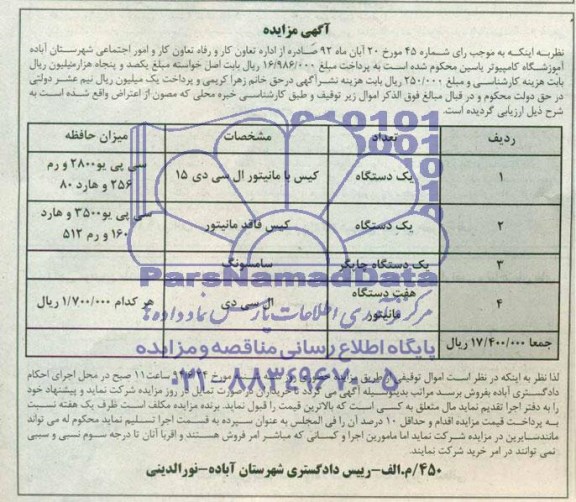 آگهی مزایده
نظربه اینکه به موجب رای شماره ۴۵ مورخ ۲۰ آبان ماه ۹۲ صادره از اداره تعاون کار و رفاه تعاون کار و امور اجتماعی شهرستان آباده
آموزشگاه کامپیوتر یاسین محکوم شده است به پرداخت مبلغ ۱۶/۹۸۶/۰۰۰ ریال بابت اصل خواسته مبلغ یکصد و پنجاه هزارملیون ریال
بابت هزینه کارشناسی و مبلغ ۲۵۰/۰۰۰ ریال بابت هزینه نشرآگهی درحق خانم زهرا کریمی و پرداخت یک ملیون ریال نیم عشر دولتی
در حق دولت محکوم و در قبال مبالغ فوق الذکر اموال زیر توقیف و طبق کارشناسی خبره محلی که مصون از اعتراض واقع شده است به
شرح ذیل ارزیابی گردیده است.
ردیف تعداد مشخصات میزان حافظه
۱ یک دستگاه کیس با مانیتور ال سی دی ۱۵ سی پی یو۲۸۰۰ و رم
۲۵۶ و هارد ۸۰
۲ یک دستگاه کیس فاقد مانیتور سی پی یو۳۵۰۰ و هارد
۱۶۰ و رم ۵۱۲
۳ یک دستگاه چاپگر سامسونگ
۴ هفت دستگاه مانیتور ال سی دی هر کدام ۱/۷۰۰/۰۰۰ ریال
جمعا ۱۷/۴۰۰/۰۰۰ ریال
ParsNamadData
مرکز فرآوری اطلاعات پارس نماد داده ها
پایگاه اطلاع رسانی مناقصه و مزایده
۰۲۱-۸۸۳۴۹۶۷۰-۵
لذا نظر به اینکه در نظر است اموال توقیفی از طریق مزایده حضوری در مورخ ساعت ۱۱ صبح در محل اجرای احکام
دادگستری آباده بفروش برسد مراتب بدینوسیله آگهی می گردد تا خریداران در صورت تمایل در روز مزایده شرکت نماید و پیشنهاد خود
را به دفتر اجرا تقدیم نماید مال متعلق به کسی است که بالاترین قیمت را قبول نماید. برنده مزایده مکلف است ظرف یک هفته نسبت
به پرداخت قیمت مزایده اقدام و حداقل ۱۰ درصد آن را فی المجلس به عنوان سپرده به قسمت اجرا تسلیم نماید محکوم له می تواند
مانندسایرین در مزایده شرکت نماید اما مامورین اجرا و کسانی که مباشر امر فروش هستند و اقربا آنان تا درجه سوم نسبی و سببی
نمی توانند در امر خرید شرکت نمایند.
۴۵۰/م.الف-رییس دادگستری شهرستان آباده-نورالدینی